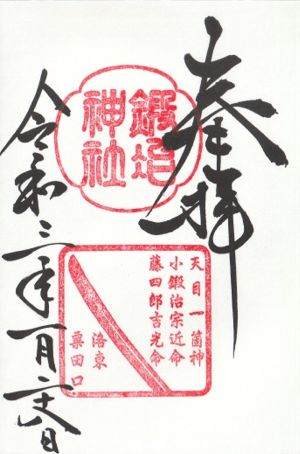 奉拝
鍛冶
神社
天目一箇神
小鍛冶宗近命
藤四郎吉光命
洛東
粟田口
令和三年一月二十八日